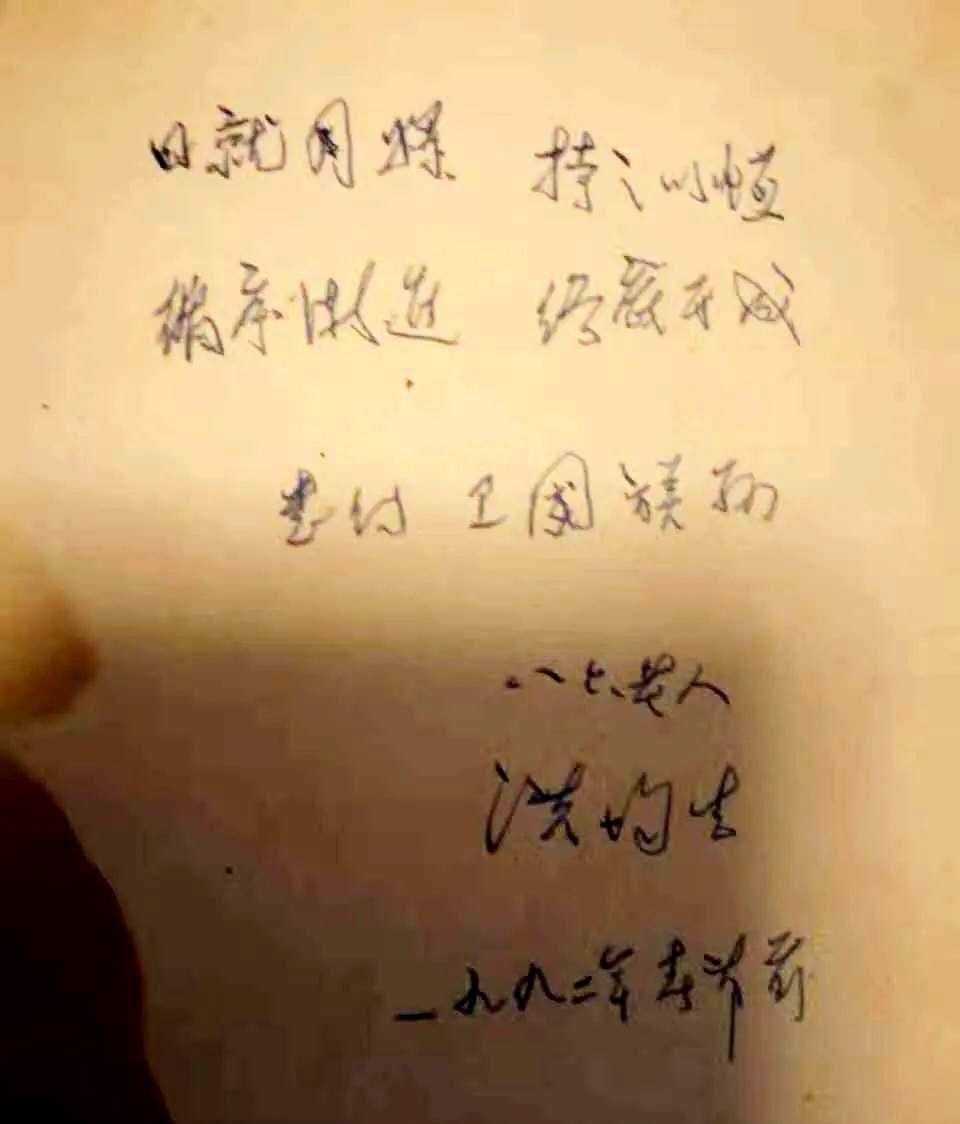 日就月将 持之以恒
循序渐进 终底于成
书付卫国族孙
八六叟人
洪均生
一九九二年春节前